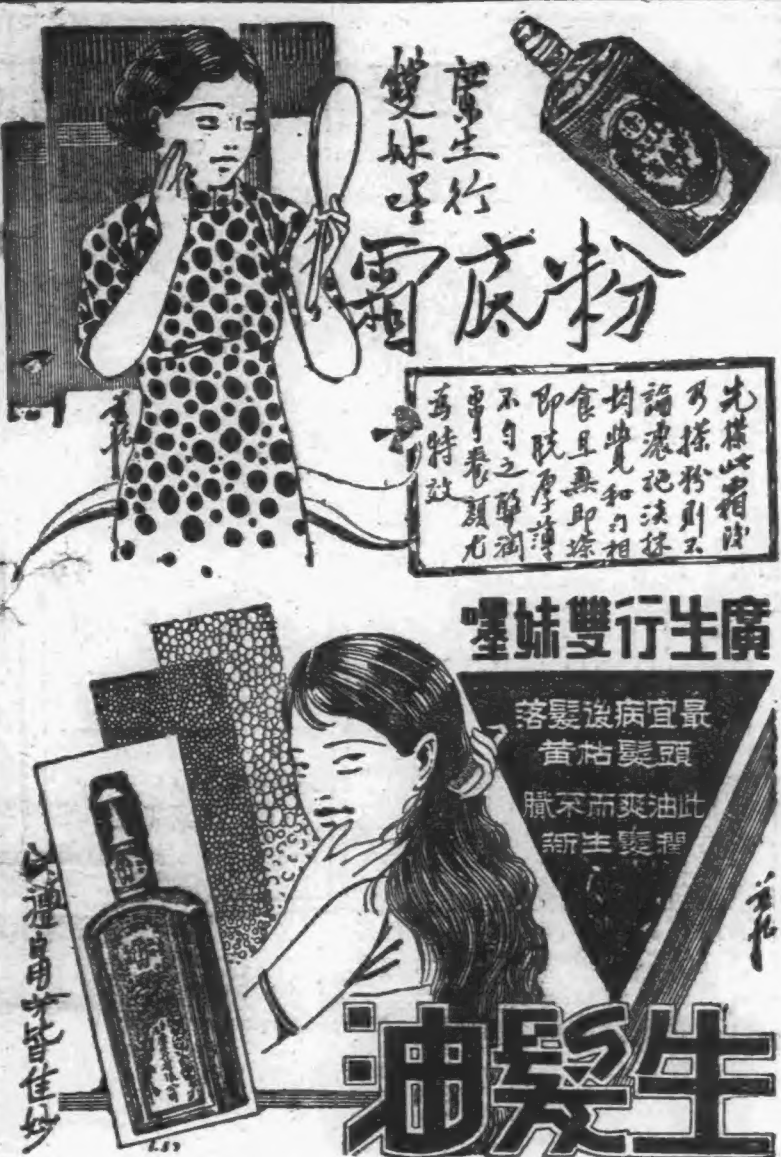 廣生行
雙妹嚜
粉底霜
先搽此霜後
乃搽粉則不
論濃施淡抹
均覺和勻相
食且無即搽
即脫厚薄
不勻之弊潤
畀養顏尤
為特效
廣生行雙妹嚜
最宜病後髮落
頭髮枯黃
此油爽而不膩
潤髮生新
生髮油
皆佳妙